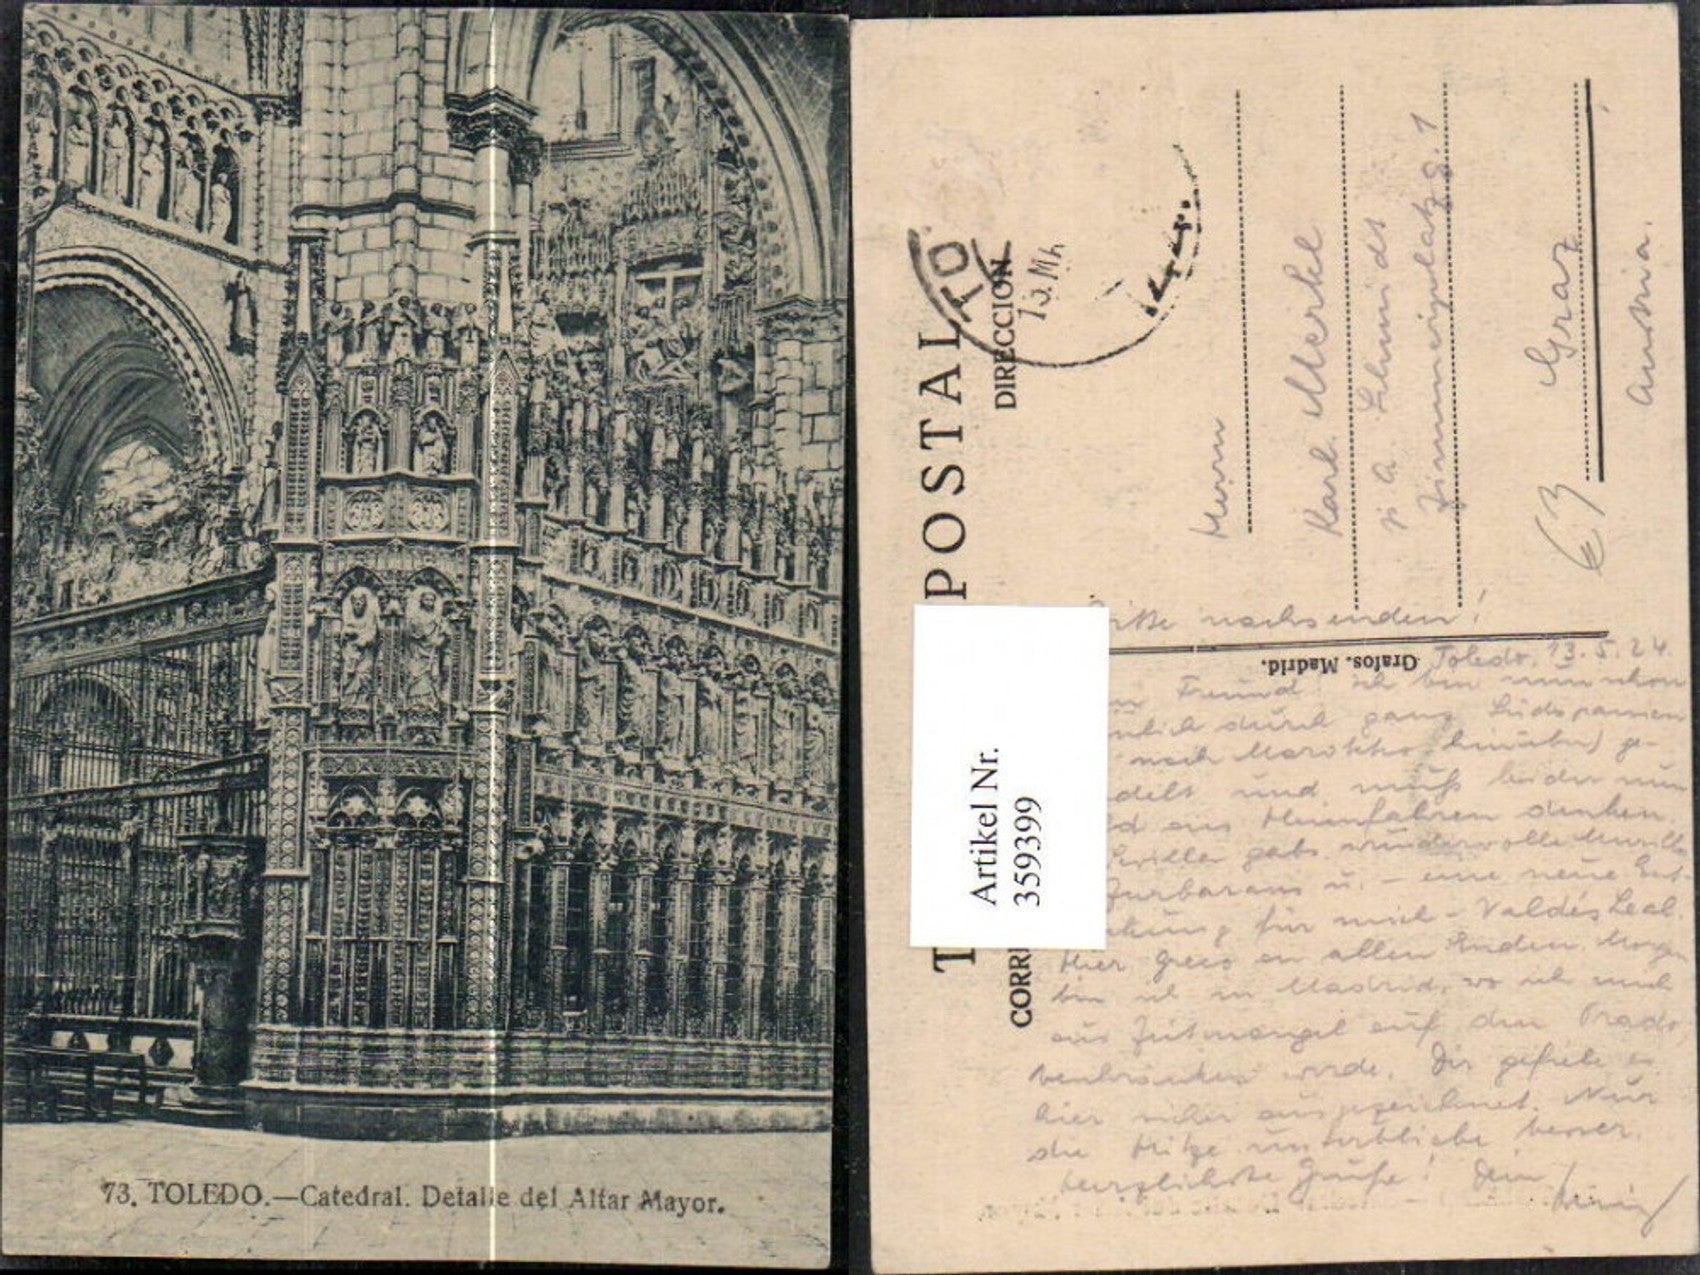 73. TOLEDO.—Catedral. Detalle del Altar Mayor.
T POSTAL
CORRE DIRECCION
TO
13.Mh
Artikel Nr.
3593399
Herrn
Karl Merkel
p. A. Schmidt
Zimmerplatzg. 1
Graz
Austria.
Bitte nachsenden!
Grafos. Madrid.
Toledo, 13.5.24.
Freund! ich bin nun schon
durch ganz Südspanien
nach Marokko hinüber) ge-
delt und muß leider nun
ans Heimfahren denken.
Sevilla gabs wundervolle Murillo
Zurbarans u. – eine neue Ent-
kung für mich – Valdés Leal.
Hier Greco an allen Enden. Morgen
bin ich in Madrid, wo ich mich
aus Zeitmangel auf den Prado
beschränken werde. Dir gefiele es
hier sicher ausgezeichnet. Nur
die Hitze unterbliebe besser.
Herzlichste Grüße! Dein